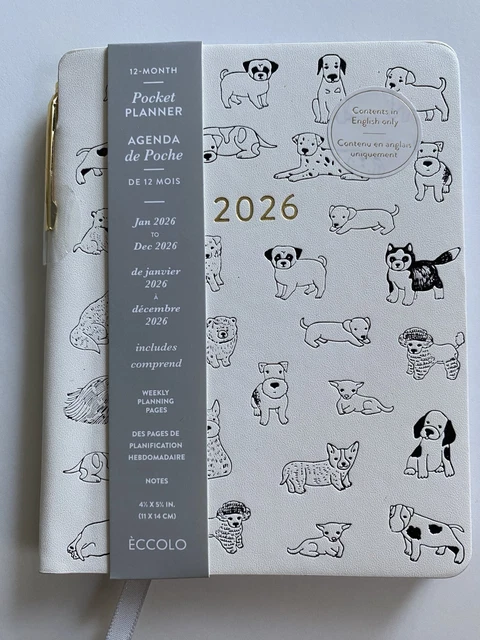 12-MONTH
Pocket
PLANNER
AGENDA
de Poche
DE 12 MOIS
Jan 2026
TO
Dec 2026
de janvier
2026
À
décembre
2026
includes
comprend
WEEKLY
PLANNING
PAGES
DES PAGES DE
PLANIFICATION
HEBDOMADAIRE
NOTES
4¼ X 5¾ IN.
(11 X 14 CM)
ÈCCOLO
2026
Contents in
English only
Contenu en anglais
uniquement